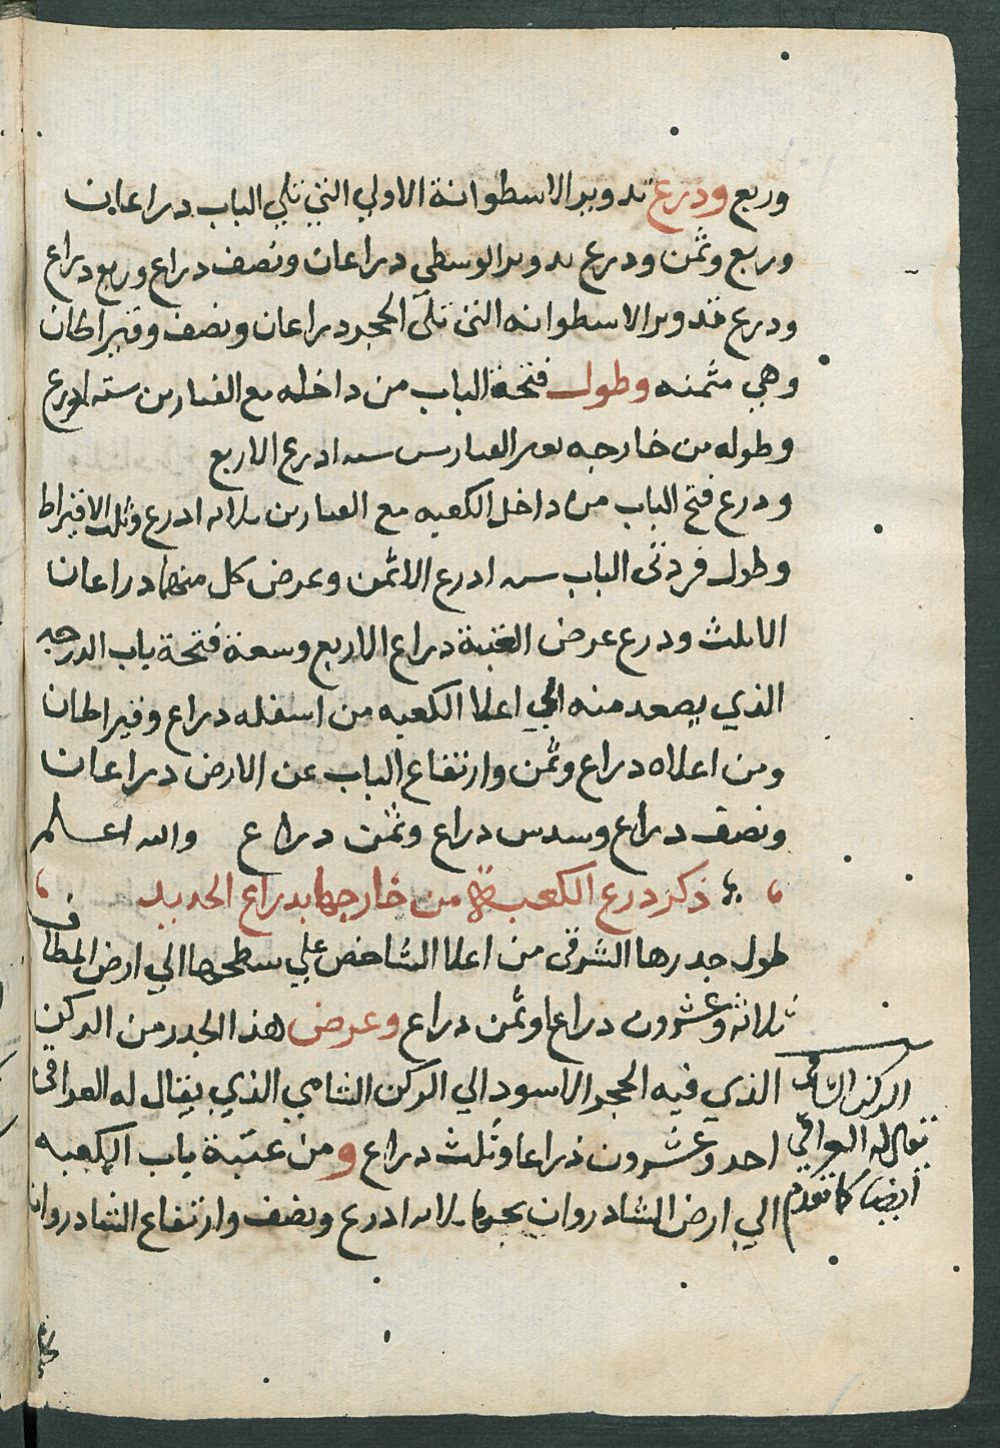 وربع ودرع تدوير الاسطوانة الاولي التي تلي الباب دراعان
وربع وثمن ودرع تدوير الوسطي دراعان ونصف دراع وربع دراع
ودرع تدوير الاسطوانه التي تلي الحجر دراعان ونصف وقيراطان
وهي مثمنه وطول فتحة الباب من داخله مع الفيارين سته ادرع
وطوله من خارجه بغير الفيارين سته ادرع الا ربع
ودرع فتح الباب من داخل الكعبه مع الفيارين ثلاثه ادرع وثلث الا قيراط
وطول فردتي الباب سته ادرع الا ثمن وعرض كل منهما دراعان
الا ثلث ودرع عرض العتبة دراع الا ربع وسعة فتحة باب الدرجه
الذي يصعد منه الي اعلا الكعبه من اسفله دراع وقيراطان
ومن اعلاه دراع وثمن وارتفاع الباب عن الارض دراعان
ونصف دراع وسدس دراع وثمن دراع والله اعلم
ذكر درع الكعبة من خارجها بدراع الحديد
طول جدرها الشرقي من اعلا الشاخص علي سطحها الي ارض المطاف
ثلاثة وعشرون دراعا وثمن دراع وعرض هذا الجدر من الركن
الذي فيه الحجر الاسود الي الركن الشامي الذي يقال له العراقي
احد وعشرون ذراعا وثلث دراع ومن عتبة باب الكعبه
الي ارض الشادروان تحتها ثلاثه ادرع ونصف وارتفاع الشادروان
الركن الشامي
يقال له العراقي
ايضا كما تقدم